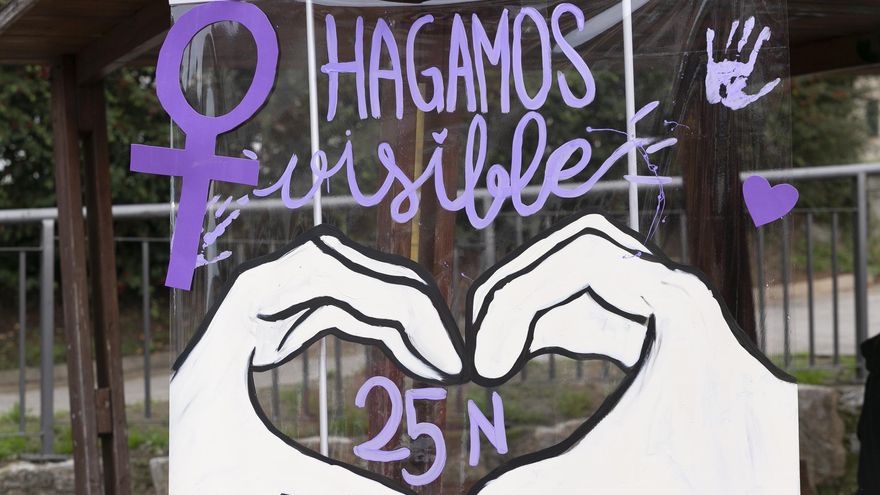 HAGAMOS
visible
25N